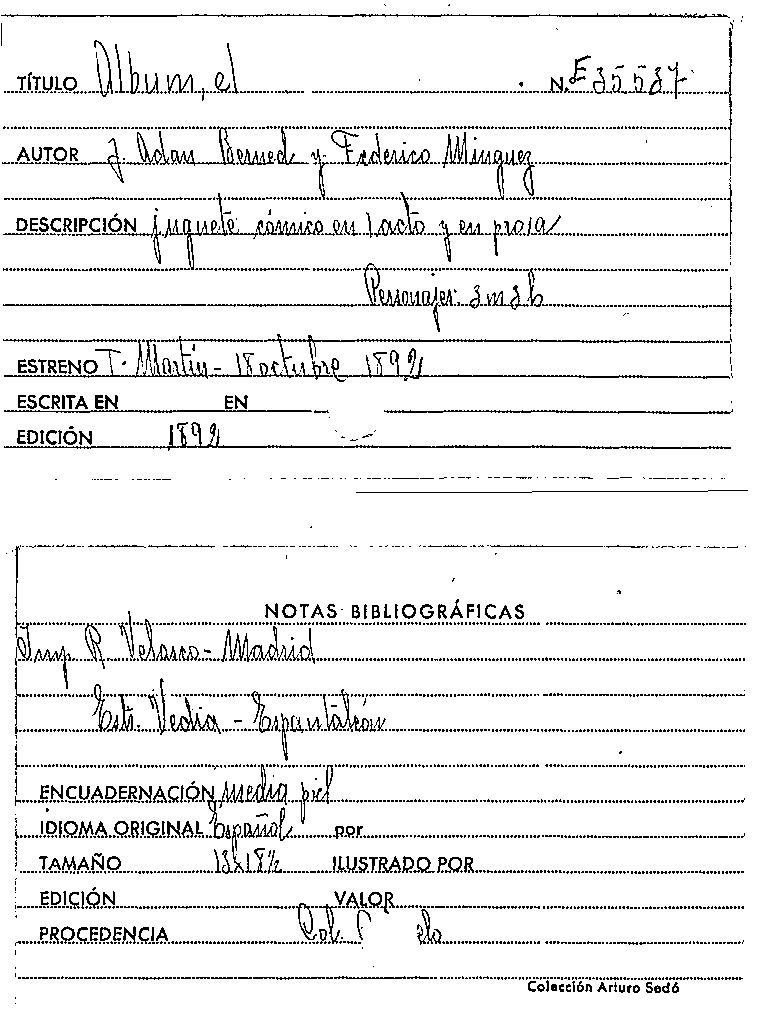 TÍTULO Album, el N. E 35537
AUTOR J. Adan Berned y Federico Minguez
DESCRIPCIÓN juguete cómico en 1 acto y en prosa
Personajes: 3m3h
ESTRENO T. Martín - 18 octubre 1892
ESCRITA EN EN
EDICIÓN 1892
NOTAS BIBLIOGRÁFICAS
Imp R Velasco - Madrid
Estr. Vedia - Espantaleón
ENCUADERNACIÓN media piel
IDIOMA ORIGINAL Español por
TAMAÑO 13x18½ ILUSTRADO POR
EDICIÓN VALOR
PROCEDENCIA Col.
Colección Arturo Sedó